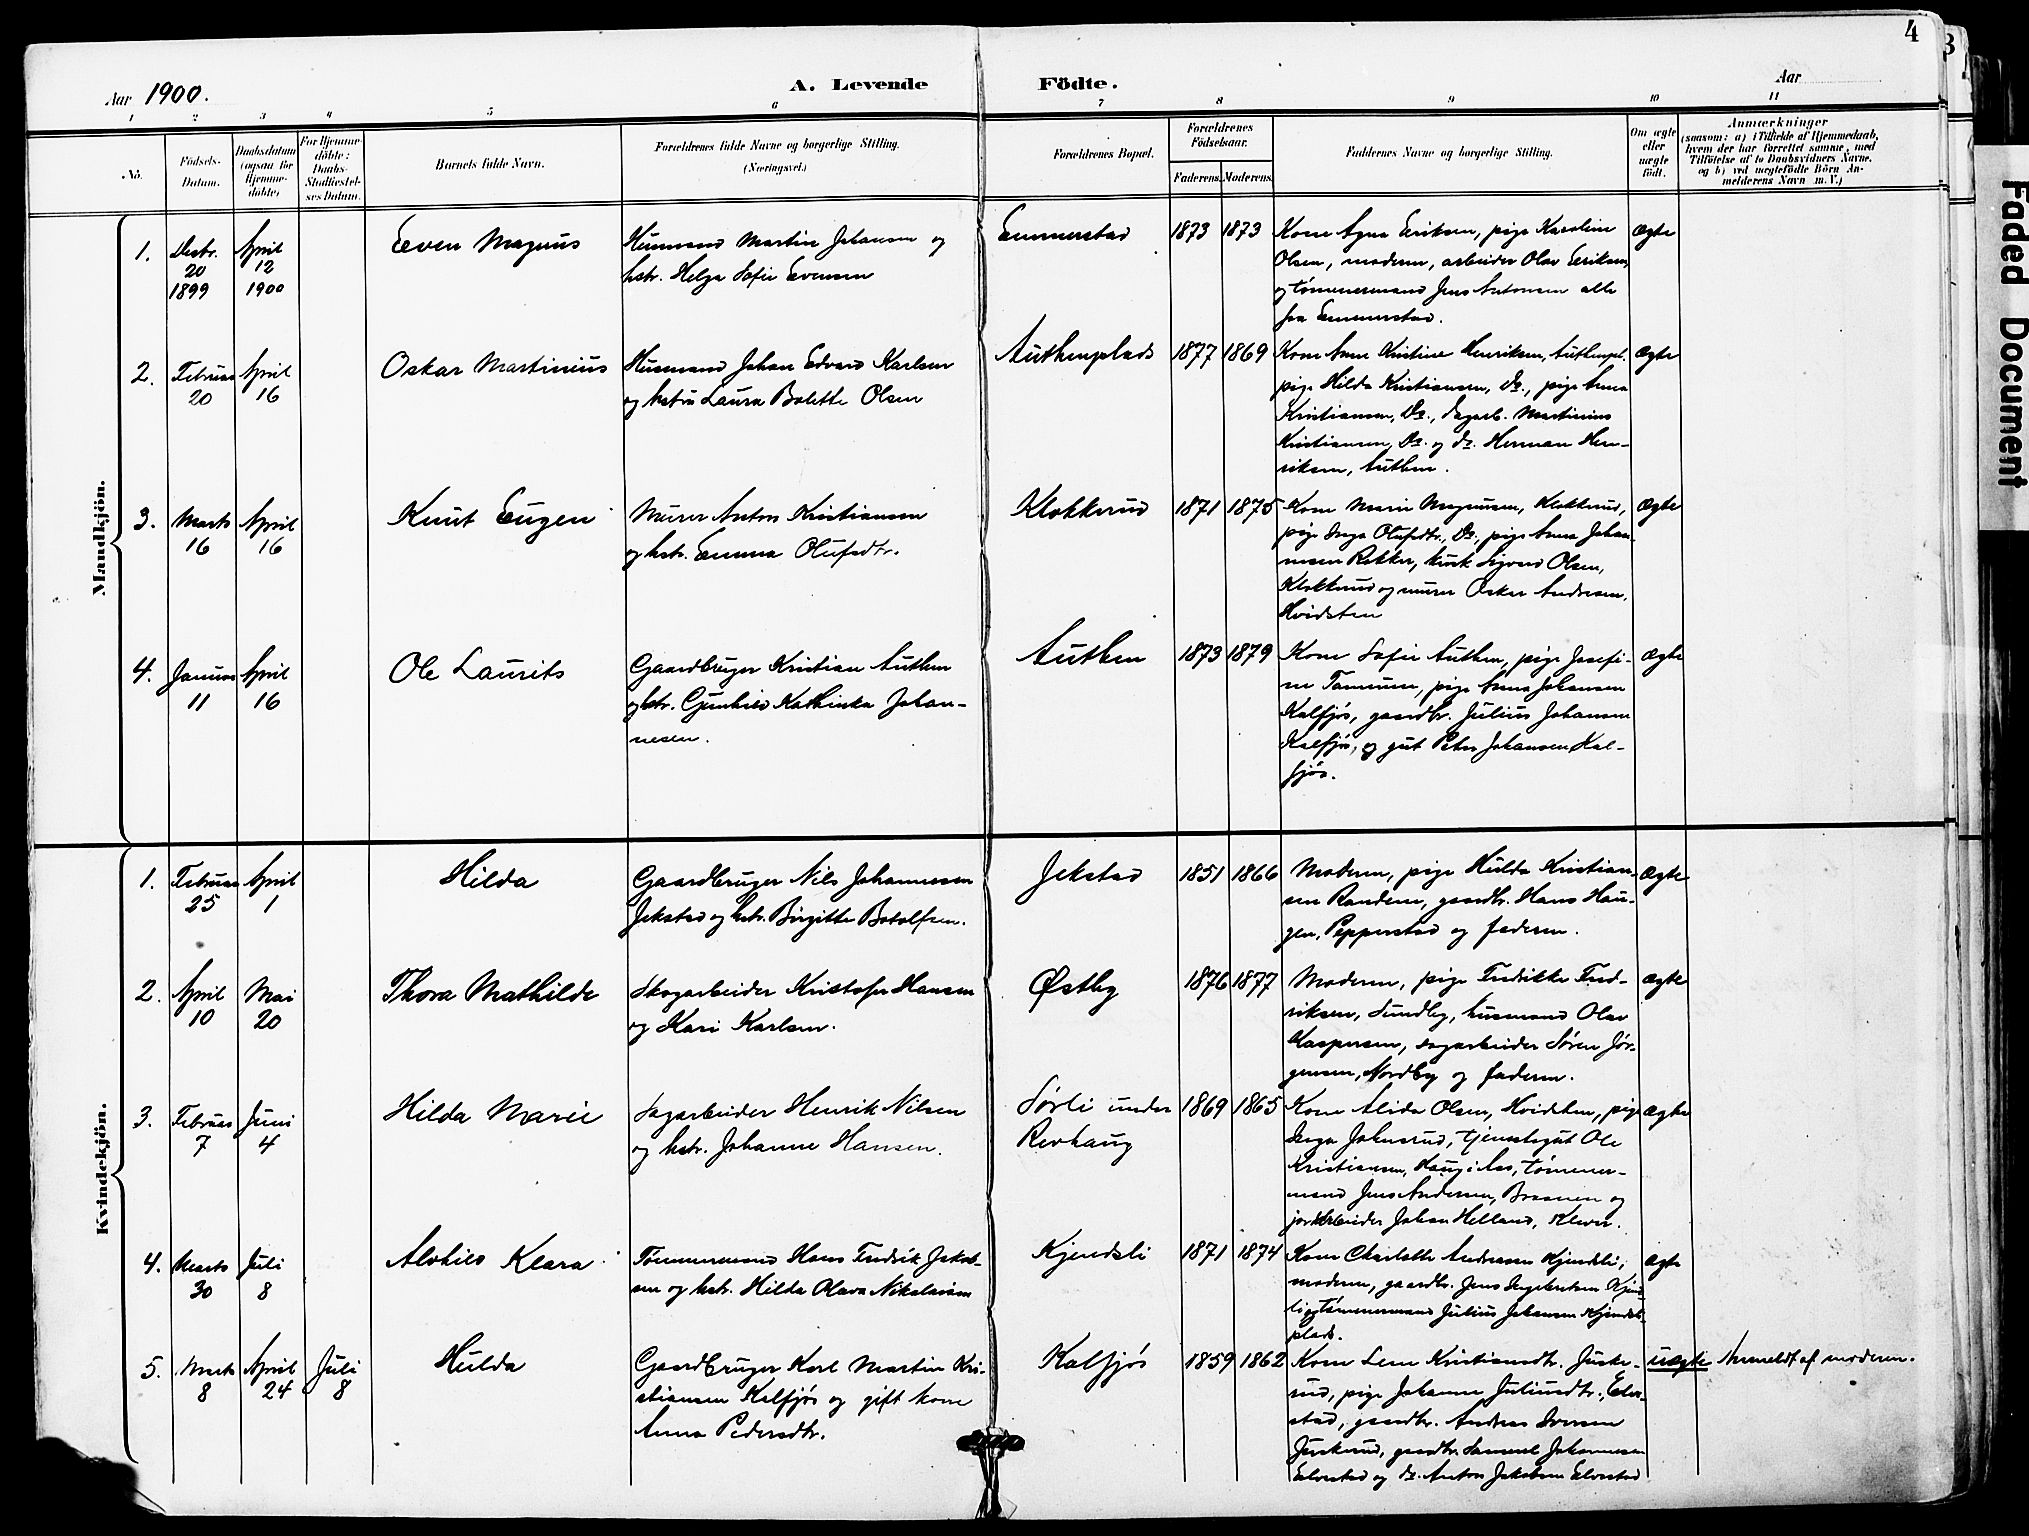 4
3
Aar 1900.
A. Levende Födte.
Aar
1 2 3 4 5 6 7 8 9 10 11
No.
Födsels-
Datum.
Daabsdatum
(ogsaa for
Hjemme-
döbte)
For Hjemme-
döbte:
Daabs-
Stadfæstel-
ses Datum.
Barnets fulde Navn.
Forældrenes fulde Navne og borgerlige Stilling.
(Næringsvei.)
Forældrenes Bopæl.
Forældrenes
Födselsaar.
Faderens. Moderens.
Faddernes Navne og borgerlige Stilling.
Om ægte
eller
uægte
födt.
Anmærkninger
(saasom: a) i Tilfælde af Hjemmedaab,
hvem der har forrettet samme, med
Tilföielse af to Daabsvidners Navne,
og b) ved uægtefödte Börn An-
melderens Navn m. V.)
Faded Document
Mandkjön.
1. Decbr. 20 1899 April 12 1900
Even Magnus
Husmand Martin Johansen og
hstr. Helga Sofie Evensen
Emmerstad 1873 1873
Kone Agna Eriksen, pige Karoline
Olsen, moderen, arbeider Olav Eriksen,
og tømmermand Jens Antonsen alle
fra Emmerstad.
ægte
2. Februar 20 April 16
Oskar Martinius
Husmand Johan Edvard Karlsen
og hustru Laura Bolette Olsen
Authenplads 1877 1869
Kone Anne Kristine Henriksen, Authenpl.
pige Hilda Kristiansen, Do., pige Anna
Kristiansen, Do., dagarb. Martinius
Kristiansen, Do. og do. Herman Hen-
riksen, Authen.
ægte
3. Marts 16 April 16
Knut Eugen
Murer Anton Kristiansen
og hstr. Emma Olufsdtr.
Klokkerud 1871 1875
Kone Marie Magnussen, Klokkerud,
pige Inga Olufsdtr., Do., pige Anna Johan-
nesen Rekker, Sigvard Olsen,
Klokkerud og murer Oskar Andresen,
Hvidsten
ægte
4. Januar 11 April 16
Ole Laurits
Gaardbruger Kristian Authen
og hstr. Gunhild Kathinka Johan-
nesen.
Authen 1873 1879
Kone Sofie Authen, pige Josefi-
ne Tømmern, pige Anna Johansen
Kalfjøs, gaardbr. Julius Johansen
Kalfjøs, og gut Peter Johansen Kal-
fjøs.
ægte
Kvindekjön.
1. Februar 25 April 1
Hilda
Gaardbruger Nils Johannesen
Jekstad og hstr. Birgitte Botolfsen.
Jekstad 1851 1866
Moderen, pige Hulda Kristian-
sen Randem, gaardbr. Hans Hau-
gen, Pepperstad og faderen.
ægte
2. April 10 Mai 20
Thora Mathilde
Skogarbeider Kristofer Hansen
og Kari Karlsen.
Østby 1876 1877
Moderen, pige Fredrikke Fred-
riksen, Sundby, husmand Olav
Kaspersen, dagarbeider Søren Jør-
gensen, Nordby og faderen.
ægte
3. Februar 7 Juni 4
Hilda Marie
Dagarbeider Henrik Nilsen
og hstr. Johanne Hansen.
Sørli under
Revhaug
1869 1865
Kone Alida Olsen, Hvidsten, pige
Inga Johnsrud, tjenestegut Ole
Kristiansen, Haug i Aas, tømmer-
mand Jens Andersen, Braanen og
jordarbeider Johan Helland, Klever.
ægte
4. Marts 30 Juli 8
Alvhild Klara
Tømmermand Hans Fredrik Jakob-
sen og hstr. Hilda Olava Nikolaisen
Kjendsli 1871 1874
Kone Charlotte Andresen Kjendsli,
moderen, gaardbr. Jens Ingebretsen Kjends-
li og tømmermand Julius Johansen Kjendsli-
plads.
ægte
5. Marts 8 April 24 Juli 8
Hulda
Gaardbruger Karl Martin Kri-
stiansen Kalfjøs og gift kone
Anna Pedersdtr.
Kalfjøs 1859 1862
Kone Lene Kristiansdtr. Juske-
rud, pige Johanne Juliusdtr., Eter-
stad, gaardbr. Andreas Iversen
Juskerud, gaardbr. Samuel Johannesen
og do. Anton Jakobsen
uægte Anmeldt af moderen.